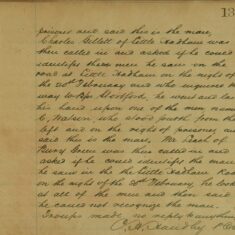 13
prisoner and said this is the man.
Charles Gillett of Little Hadham was
then called in and asked if he could
identify the man he saw on the
road at Little Hadham on the night of
the 20th February and who inquired the
way to Stortford, he went and laid
his hand upon one of the men named
C. Watson who stood fourth from the
left and on the right of prisoner and
said this is the man. Mr
Green was then called in and
asked if he could identify the man
he saw in the Little Hadham Road
on the night of the 20th February, he looked
at all of the men and then said
he could not recognise the man.
made no reply to anything